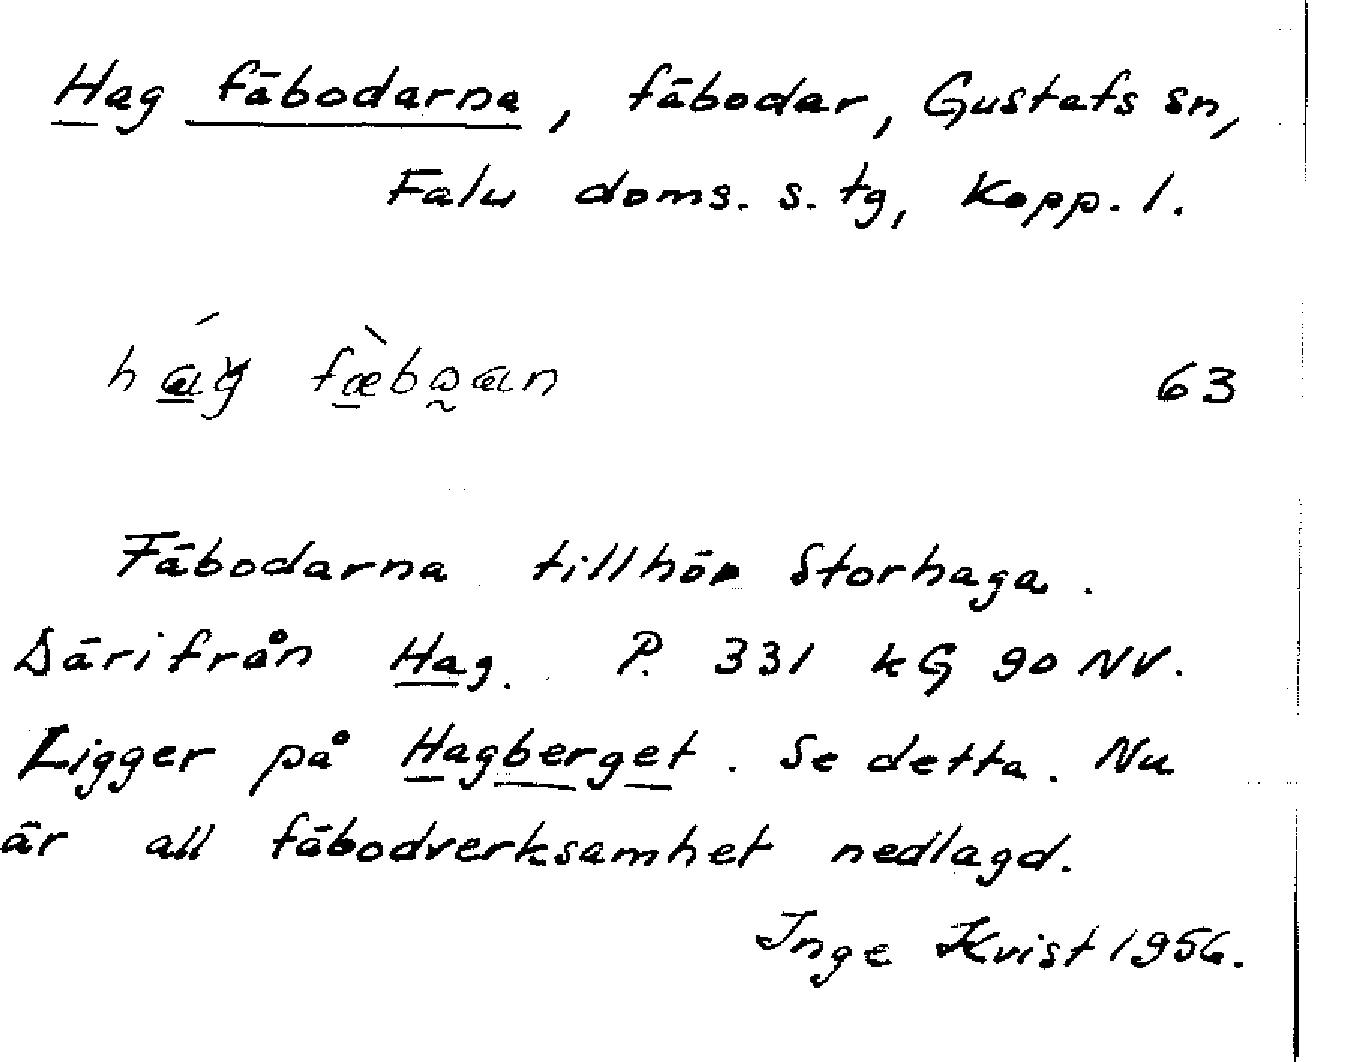 Hag fäbodarna, fäbodar, Gustafs sn,
Falu doms. s. tg, Kopp. l.
63
Fäbodarna tillhör Storhaga.
Därifrån Hag. P. 331 kG 90 NV.
Ligger på Hagberget. Se detta. Nu
är all fäbodverksamhet nedlagd.
Inge Kvist 1956.